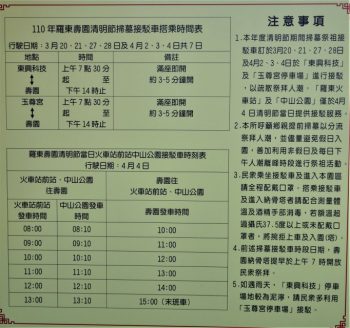 110 年羅東壽園清明節掃墓接駁車搭乘時間表
行駛日期：3月20、21、27、28日及4月2、3、4日共7日
地點 時間 備註
東興科技 上午7點30分 滿座即開
↕ 起 至 約3-5分鐘開
壽園 下午14時止
玉尊宮 上午7點30分 滿座即開
↕ 起 至 約3-5分鐘開
壽園 下午14時止
羅東壽園清明節當日火車站前站中山公園接駁車時刻表
行駛日期：4月4日
火車站前站、中山公園 往壽園
壽園往 火車站前站、中山公園
火車站前站 發車時間 中山公園發車 時間 壽園發車時間
08:00 08:10 10:00
09:00 09:10 11:00
10:00 10:10 12:00
11:00 11:10 13:00
12:00 12:10 14:00
13:00 13:10 15:00(末班車)
注意事項
1.本年度清明節期間掃墓祭祖接
駁車訂於3月20日、21日、27日、28日
及4月2、3-4日於「東興科技」
及「玉尊宮停車場」進行接駁
，以疏散祭拜人潮，「羅東火
車站」及「中山公園」僅於4月
4日清明節當日提供接駁服務。
2.本所呼籲鄉親提前掃墓以分流
祭拜人潮，並儘量避免假日入
園，善加利用非假日及每日下
午人潮離峰時段進行祭祖活動。
3.民衆乘坐接駁車及進入本園區
請全程配戴口罩，搭乘接駁車
及進入納骨塔者請配合測量體
溫及酒精手部消毒，若額溫超
過攝氏37.5度以上或未配戴口
罩者，將婉拒上車及入園(塔)。
4.前述掃墓接駁車時段日期，壽
園納骨塔提早於上午7時開放
民衆祭拜。
5.如遇雨天，「東興科技」停車
場地較為泥濘，請民衆多利用
「玉尊宮停車場」接駁。